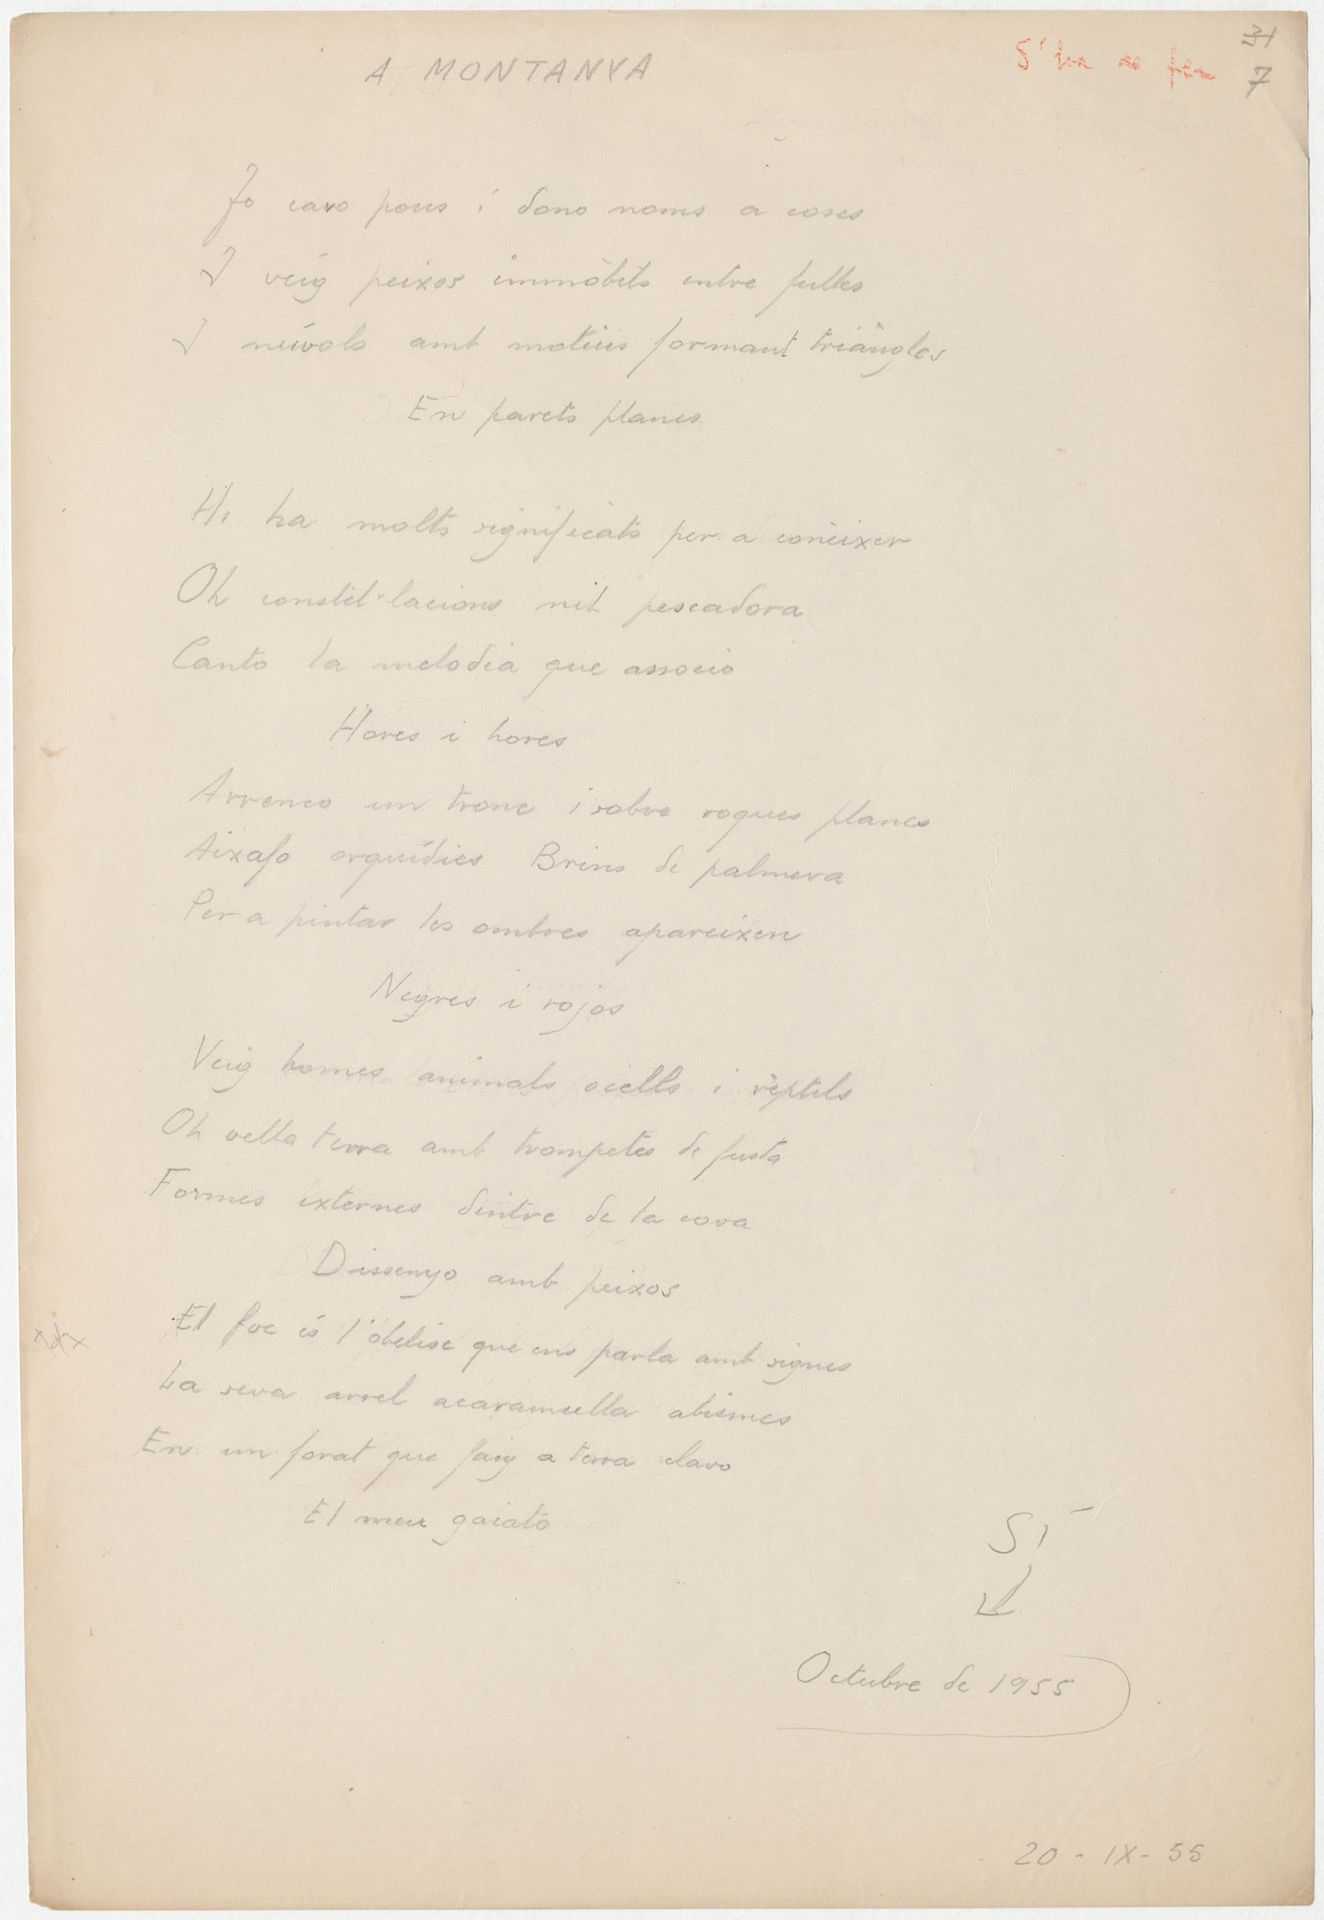 31
7
S'ha de fer
A MONTANYA
Jo cavo pous i dono noms a coses
I veig peixos immòbils entre fulles
I núvols amb motius formant triàngles
En parets planes
Hi ha molts significats per a conèixer
Oh constel·lacions nit pescadora
Canto la melodia que associo
Hores i hores
Arrenco un tronc i sobre roques planes
Aixafo orquídies Brins de palmera
Per a pintar les ombres apareixen
Negres i rojos
Veig homes animals ocells i rèptils
Oh vella terra amb trompetes de fusta
Formes externes dintre de la cova
Dissenyo amb peixos
El foc és l'obelisc que ens parla amb signes
La seva arrel acaramulla abismes
En un forat que faig a terra clavo
El meu gaiato
SÍ
Octubre de 1955
20-IX-55